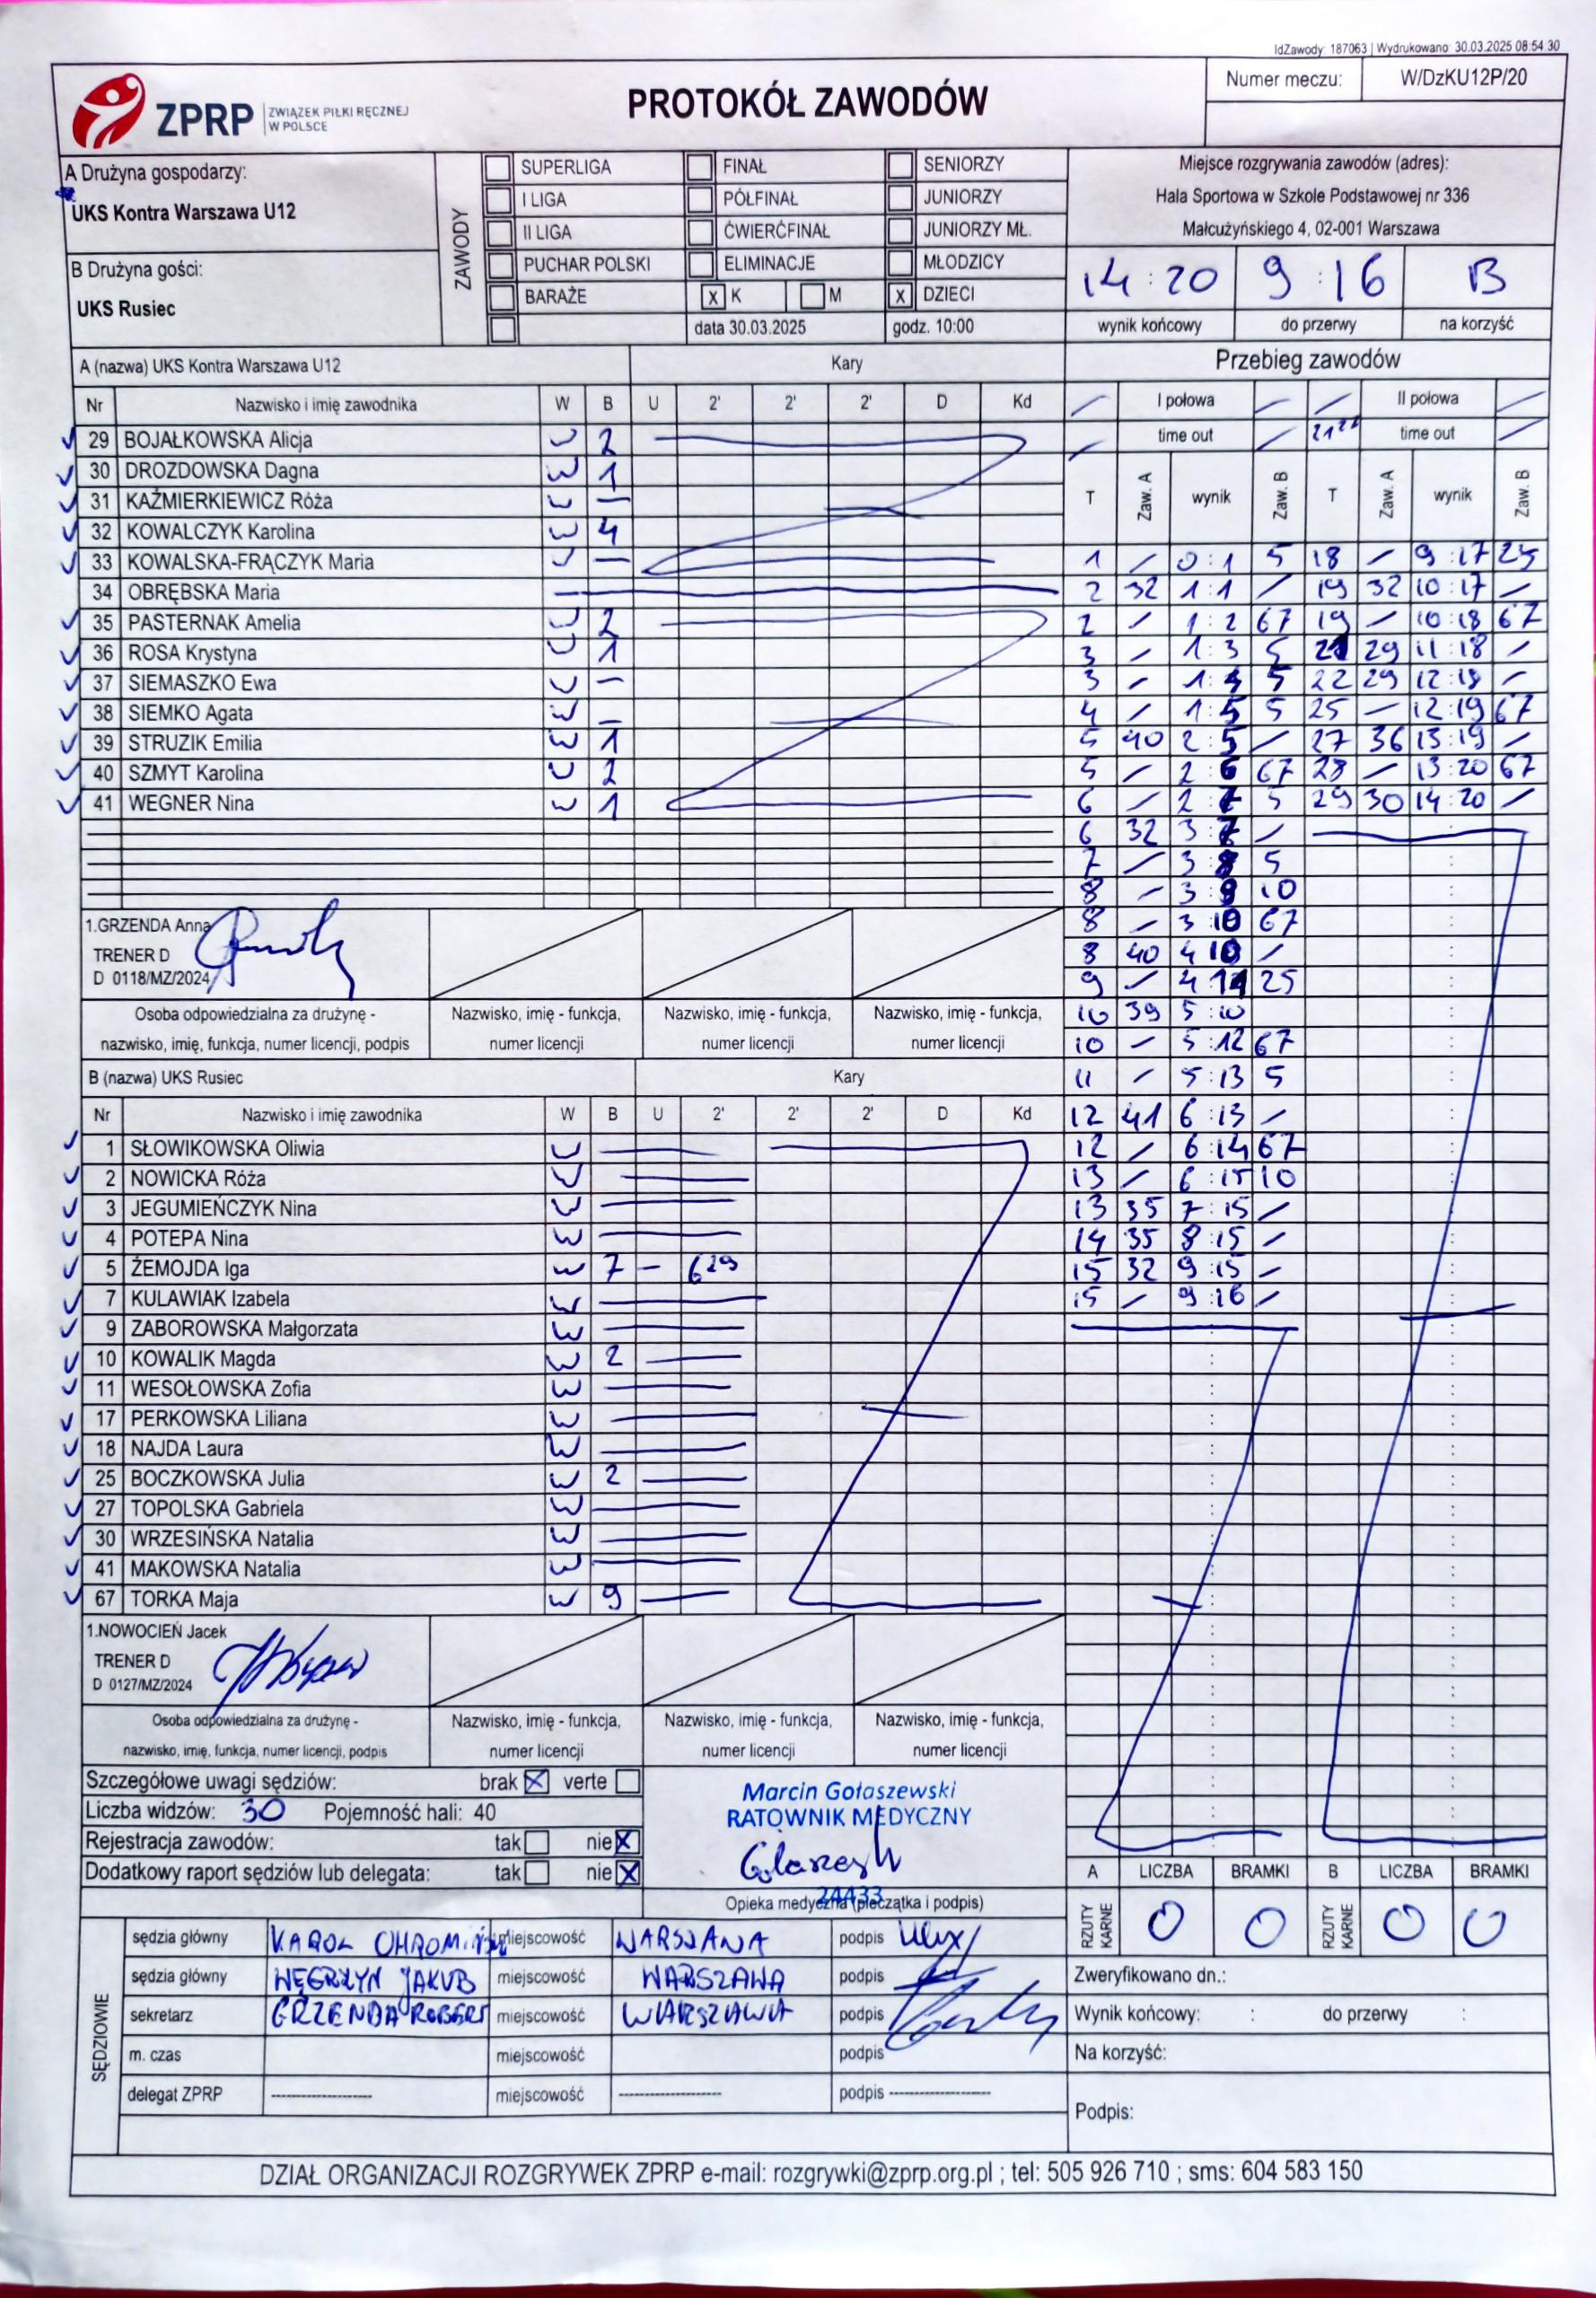 IdZawody: 187063 | Wydrukowano: 30.03.2025 08:54:30
ZPRP ZWIĄZEK PIŁKI RĘCZNEJ W POLSCE
PROTOKÓŁ ZAWODÓW
Numer meczu: W/DzKU12P/20
A Drużyna gospodarzy:
UKS Kontra Warszawa U12
B Drużyna gości:
UKS Rusiec
ZAWODY
SUPERLIGA FINAŁ SENIORZY
I LIGA PÓŁFINAŁ JUNIORZY
II LIGA ĆWIERĆFINAŁ JUNIORZY MŁ.
PUCHAR POLSKI ELIMINACJE MŁODZICY
BARAŻE x K M x DZIECI
data 30.03.2025 godz. 10:00
Miejsce rozgrywania zawodów (adres):
Hala Sportowa w Szkole Podstawowej nr 336
Małcużyńskiego 4, 02-001 Warszawa
14:20 9:16 B
wynik końcowy do przerwy na korzyść
A (nazwa) UKS Kontra Warszawa U12 Kary
Nr Nazwisko i imię zawodnika W B U 2' 2' 2' D Kd
29 BOJAŁKOWSKA Alicja W 2
30 DROZDOWSKA Dagna W 1
31 KAŹMIERKIEWICZ Róża W —
32 KOWALCZYK Karolina W 4
33 KOWALSKA-FRĄCZYK Maria W —
34 OBRĘBSKA Maria
35 PASTERNAK Amelia W 2
36 ROSA Krystyna W 1
37 SIEMASZKO Ewa W —
38 SIEMKO Agata W —
39 STRUZIK Emilia W 1
40 SZMYT Karolina W 2
41 WEGNER Nina W 1
1.GRZENDA Anna
TRENER D
D 0118/MZ/2024
Osoba odpowiedzialna za drużynę - nazwisko, imię, funkcja, numer licencji, podpis
Nazwisko, imię - funkcja, numer licencji
Nazwisko, imię - funkcja, numer licencji
Nazwisko, imię - funkcja, numer licencji
B (nazwa) UKS Rusiec Kary
Nr Nazwisko i imię zawodnika W B U 2' 2' 2' D Kd
1 SŁOWIKOWSKA Oliwia W
2 NOWICKA Róża W
3 JEGUMIEŃCZYK Nina W
4 POTEPA Nina W
5 ŻEMOJDA Iga W 7 — 6 29
7 KULAWIAK Izabela W
9 ZABOROWSKA Małgorzata W
10 KOWALIK Magda W 2
11 WESOŁOWSKA Zofia W
17 PERKOWSKA Liliana W
18 NAJDA Laura W
25 BOCZKOWSKA Julia W 2
27 TOPOLSKA Gabriela W
30 WRZESIŃSKA Natalia W
41 MAKOWSKA Natalia W
67 TORKA Maja W 9
1.NOWOCIEŃ Jacek
TRENER D
D 0127/MZ/2024
Osoba odpowiedzialna za drużynę - nazwisko, imię, funkcja, numer licencji, podpis
Nazwisko, imię - funkcja, numer licencji
Nazwisko, imię - funkcja, numer licencji
Nazwisko, imię - funkcja, numer licencji
Przebieg zawodów
I połowa II połowa
time out time out
T Zaw. A wynik Zaw. B T Zaw. A wynik Zaw. B
1 / 0:1 5 18 / 9:17 25
2 32 1:1 / 19 32 10:17 /
2 / 1:2 67 19 / 10:18 67
3 / 1:3 5 21 29 11:18 /
3 / 1:4 5 22 29 12:18 /
4 / 1:5 5 25 — 12:19 67
5 40 2:5 / 27 36 13:19 /
5 / 2:6 67 28 / 13:20 67
6 / 2:7 5 29 30 14:20 /
6 32 3:7 /
7 / 3:8 5
8 / 3:9 10
8 / 3:10 67
8 40 4:10 /
9 / 4:11 25
10 39 5:10
10 — 5:12 67
11 / 5:13 5
12 41 6:13 /
12 / 6:14 67
13 / 6:15 10
13 35 7:15 /
14 35 8:15 /
15 32 9:15 /
15 / 9:16 /
Szczegółowe uwagi sędziów: brak x verte
Liczba widzów: 30 Pojemność hali: 40
Rejestracja zawodów: tak nie x
Dodatkowy raport sędziów lub delegata: tak nie x
Marcin Gołaszewski
RATOWNIK MEDYCZNY
24433
Opieka medyczna (pieczątka i podpis)
A LICZBA BRAMKI B LICZBA BRAMKI
RZUTY KARNE 0 0 RZUTY KARNE 0 0
SĘDZIOWIE
sędzia główny KAROL miejscowość WARSZAWA podpis
sędzia główny WĘGRZYN JAKUB miejscowość WARSZAWA podpis
sekretarz GRZENDA ROBERT miejscowość WARSZAWA podpis
m. czas miejscowość podpis
delegat ZPRP -------------------- miejscowość -------------------- podpis --------------------
Zweryfikowano dn.:
Wynik końcowy: : do przerwy :
Na korzyść:
Podpis:
DZIAŁ ORGANIZACJI ROZGRYWEK ZPRP e-mail: rozgrywki@zprp.org.pl ; tel: 505 926 710 ; sms: 604 583 150